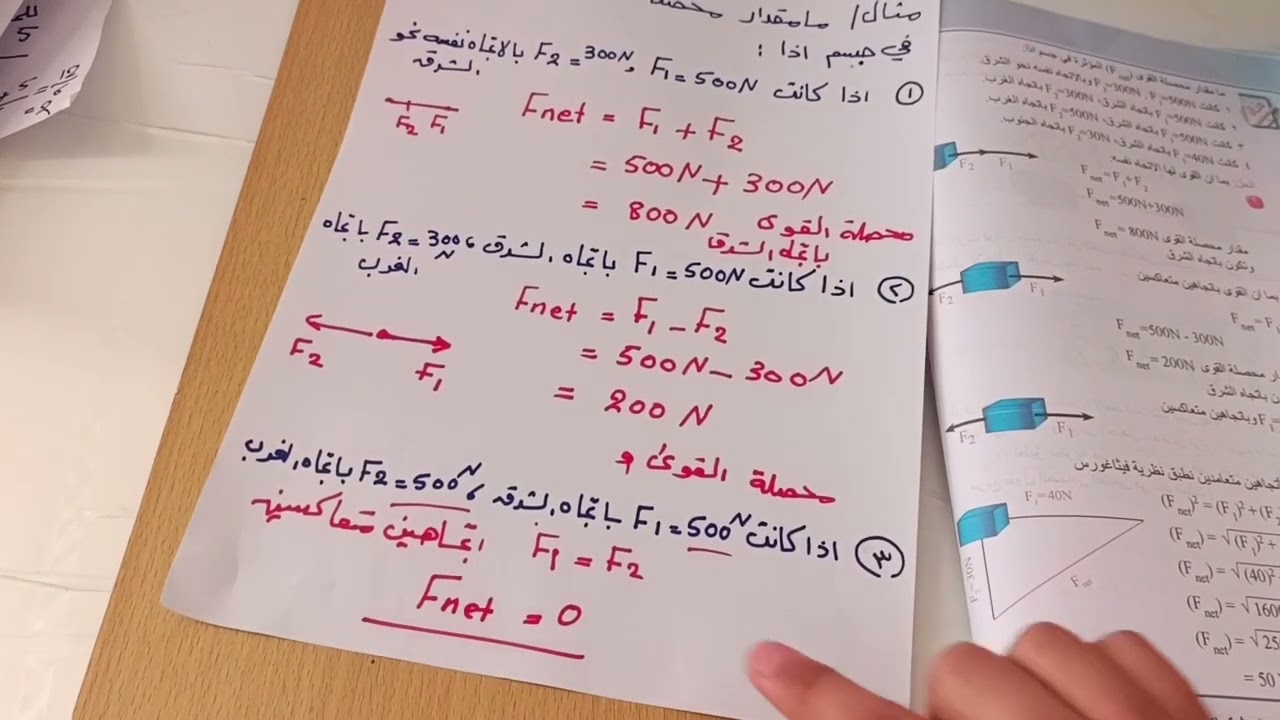 مثال/ ما مقدار محصلة
في جسم اذا :
١ اذا كانت F₁ = 500N و F₂ = 300N بالاتجاه نفسه نحو
الشرق
Fnet = F₁ + F₂
F₂ F₁
= 500N + 300N
= 800N محصلة القوى
باتجاه الشرق
٢ اذا كانت F₁ = 500N باتجاه الشرق ، F₂ = 300 N باتجاه
الغرب
Fnet = F₁ - F₂
F₂ F₁
= 500N - 300N
= 200 N
محصلة القوى و
٣ اذا كانت F₁ = 500N باتجاه الشرق ، F₂ = 500N باتجاه الغرب
F₁ = F₂ اتجاهين متعاكسين
Fnet = 0
5
ما مقدار محصلة القوى (F net) المؤثرة في جسم اذا:
١. كانت F₁=500N، F₂=300N وبالاتجاه نفسه نحو الشرق.
٢. كانت F₁=500N باتجاه الشرق، F₂=300N باتجاه الغرب.
٣. كانت F₁=500N باتجاه الشرق، F₂=500N باتجاه الغرب.
٤. كانت F₁=40N باتجاه الشرق، F₂=30N باتجاه الجنوب.
الحل: بما ان القوى لها الاتجاه نفسه:
F₂ F₁
F net = F₁+F₂
F net = 500N+300N
مقدار محصلة القوى F net = 800N
وتكون باتجاه الشرق
ما ان القوى باتجاهين متعاكسين
F₂ F₁
F net = F
F net = 500N - 300N
محصلة القوى F net = 200N
ن باتجاه الشرق
F₁ = وباتجاهين متعاكسين
F₂ F₁
تجاهين متعامدين نطبق نظرية فيثاغورس
F₁= 40N
F net
(F net)² = (F₁)² + (F
(F net) = √(F₁)² +
(F net) = √(40)²
(F net) = √160
(F net) = √25
= 50